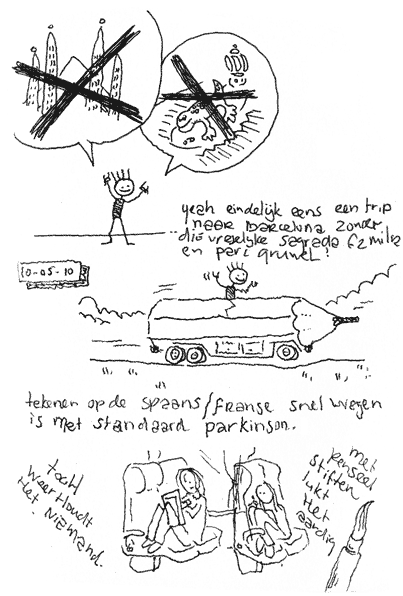 yeah eindelijk eens een trip
naar Barcelona zonder
die vreselyke sagrada
en parc gruwel!
10-05-10
tekenen op de spaans/franse snelwegen
is met standaard parkinson.
toch
weerhoudt
het niemand.
met
penseel
stiften
lukt
het
aardig